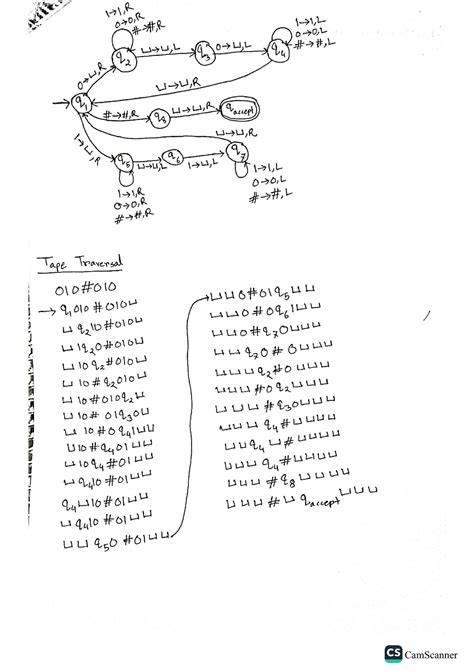 1→1,R
0→0,R
#→#,R
1→1,L
0→0,L
#→#,L
q2
⊔→⊔,L
q3
0→⊔,L
q4
0→⊔,R
⊔→⊔,R
q1
#→#,R
q8
⊔→⊔,R
qaccept
⊔→⊔,R
1→⊔,R
q5
⊔→⊔,L
q6
1→⊔,L
q7
1→1,R
0→0,R
#→#,R
1→1,L
0→0,L
#→#,L
Tape Traversal
010#010
→ q1010#010⊔
⊔q210#010⊔
⊔1q20#010⊔
⊔10q2#010⊔
⊔10#q2010⊔
⊔10#010q2⊔
⊔10#01q30⊔
⊔10#0q41⊔⊔
⊔10#q401⊔⊔
⊔10q4#01⊔⊔
⊔1q40#01⊔⊔
q4⊔10#01⊔⊔
⊔q110#01⊔⊔
⊔⊔q50#01⊔⊔
⊔⊔0#01q5⊔⊔
⊔⊔0#0q61⊔⊔
⊔⊔0#q70⊔⊔⊔
⊔⊔q70#0⊔⊔⊔
⊔⊔⊔q2#0⊔⊔⊔
⊔⊔⊔#0q2⊔⊔⊔
⊔⊔⊔#q30⊔⊔⊔
⊔⊔⊔q4#⊔⊔⊔⊔
⊔⊔q4⊔#⊔⊔⊔⊔
⊔⊔⊔q4#⊔⊔⊔⊔
⊔⊔⊔#q8⊔⊔⊔⊔
⊔⊔⊔#⊔qaccept⊔⊔⊔
CS CamScanner